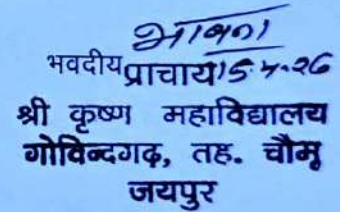 भावना
भवदीय प्राचार्य 15.4.26
श्री कृष्ण महाविद्यालय
गोविन्दगढ़, तह. चौमू
जयपुर